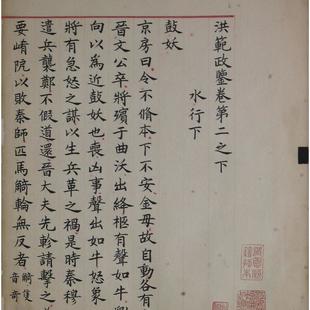 洪範政鑒卷第二之下
水行下
鼓妖
京房曰令不脩本下不安金毋故自動各有
晉文公卒將殯于曲沃出絳柩有聲如牛劉
向以為近鼓妖也喪凶事聲出如牛怒象
將有急怒之謀以生兵革之禍是時秦穆
遣兵襲鄭不假道還晉大夫先軫請擊之
要崤阸以敗秦師匹馬觭輪無反者觭隻音奇